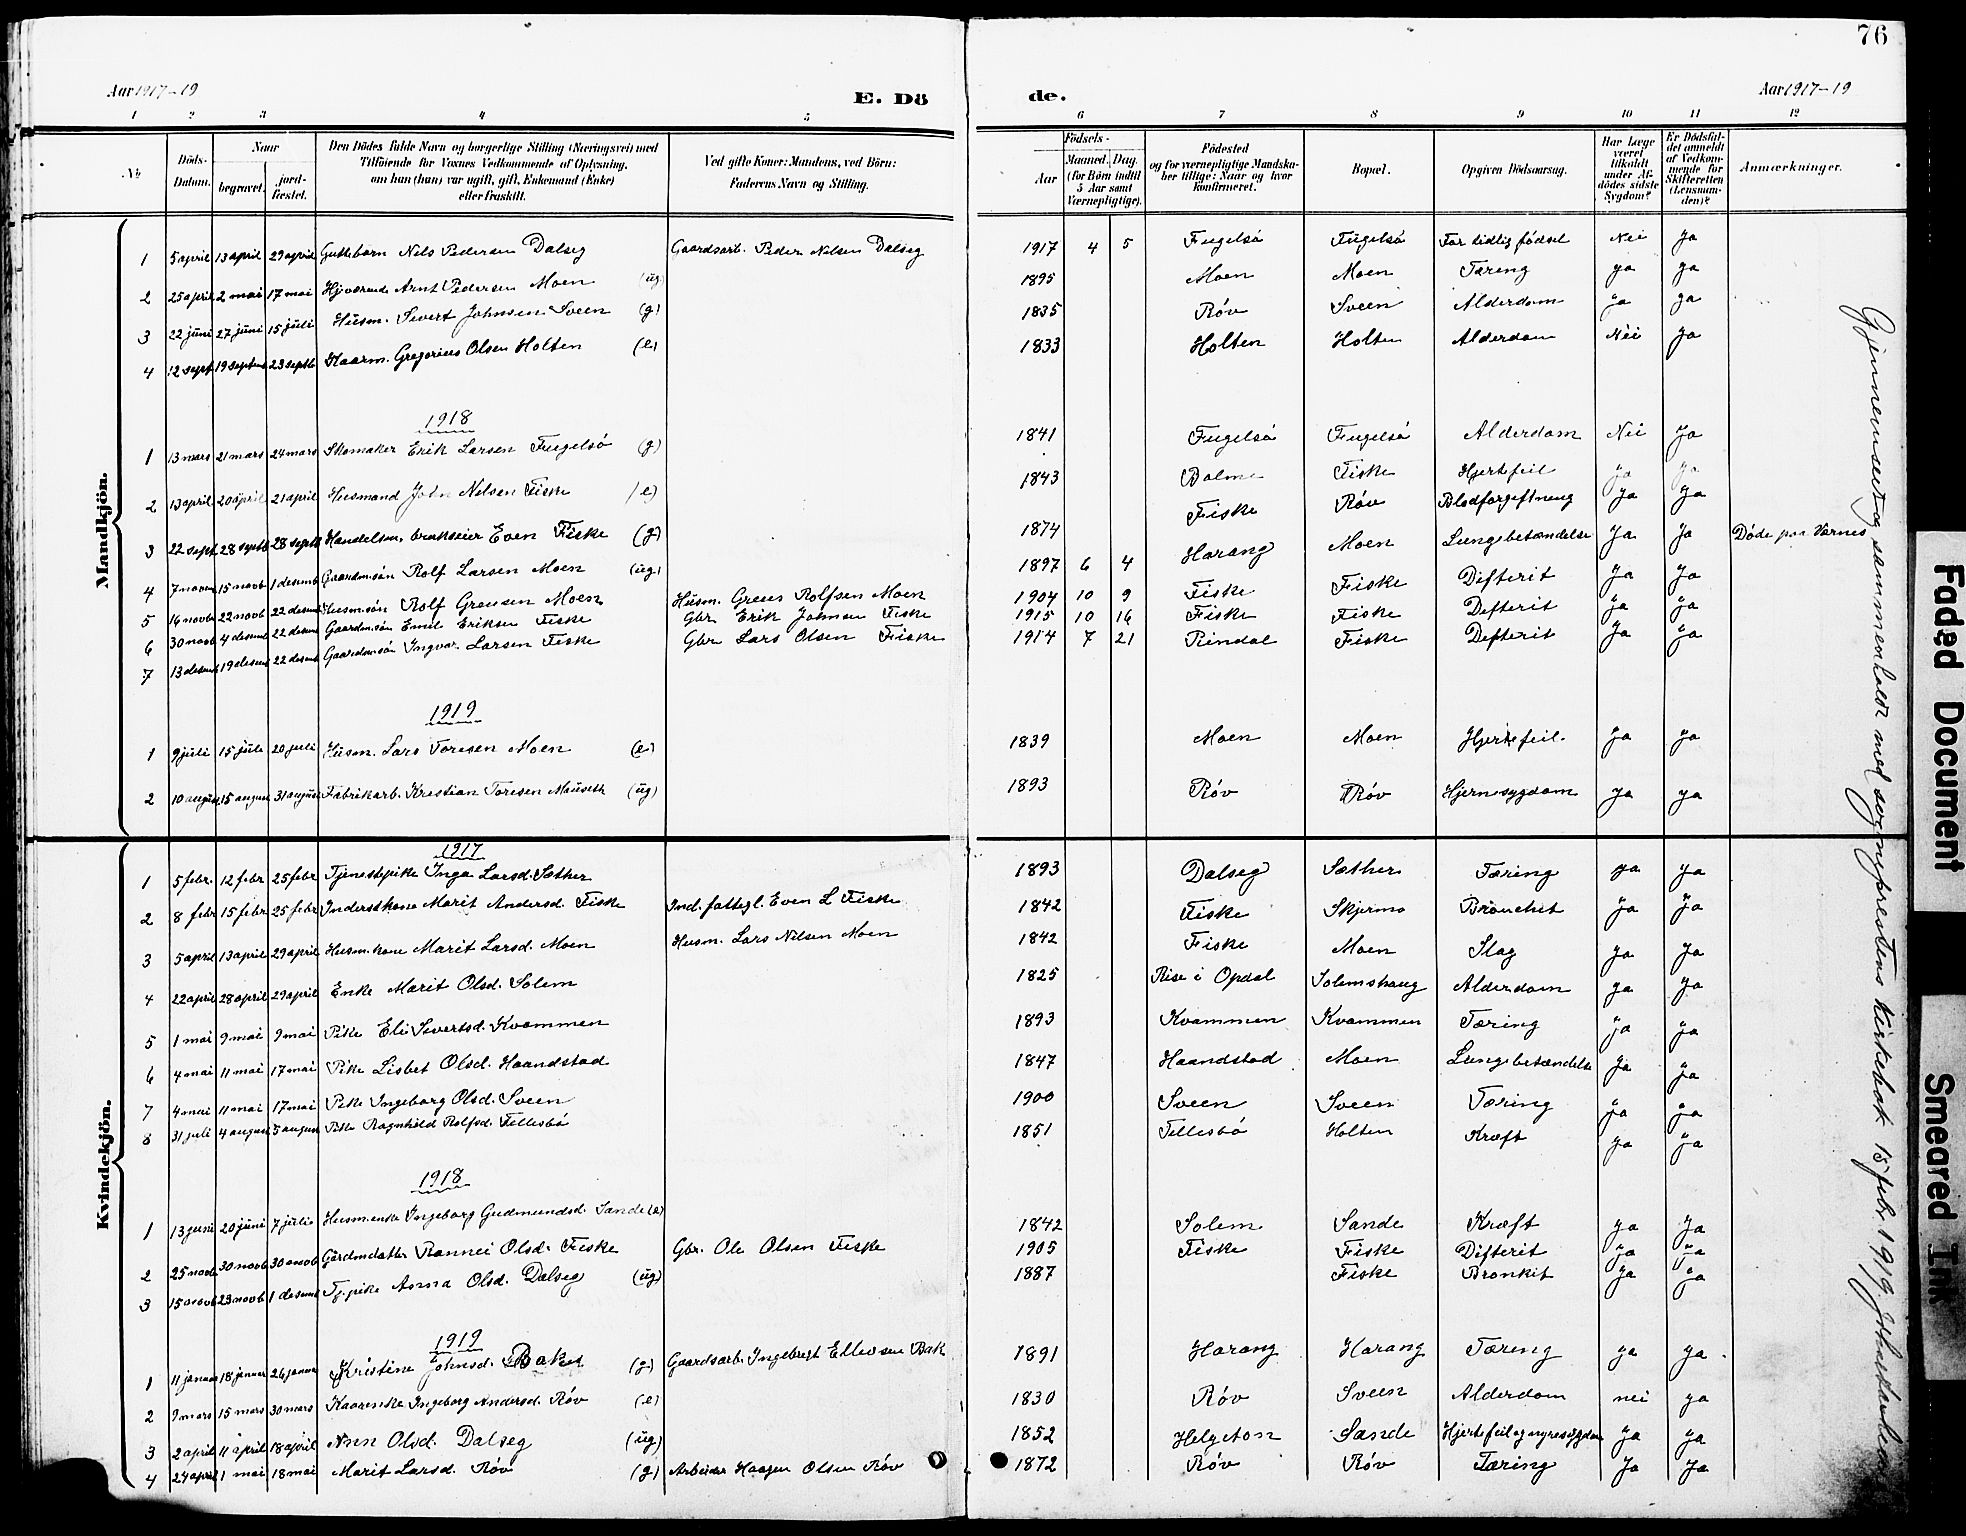 76
Aar 1917-19
E. Dö
de.
Aar 1917-19
1 2 3 4 5 6 7 8 9 10 11 12
No
Döds-Datum.
Naar
begravet.
jordfæstet.
Den Dödes fulde Navn og borgerlige Stilling (Næringsvei) med Tilföiende for Voxnes Vedkommende af Oplysning, om han (hun) var ugift, gift, Enkemand (Enke) eller fraskilt.
Ved gifte Koner: Mandens, ved Börn: Faderens Navn og Stilling.
Födsels-
Aar
Maaned. Dag.
(for Börn indtil 5 Aar samt Værnepligtige).
Födested og for værnepligtige Mandskaber tillige: Naar og hvor konfirmeret.
Bopæl.
Opgiven Dödsaarsag.
Har Læge været tilkaldt under Afdödes sidste Sygdom?
Er Dödsfaldet anmeldt af Vedkommende for Skifteretten (Lensmanden)?
Anmærkninger.
Mandkjön.
1 5 april 13 april 29 april Guttebarn Nils Pedersen Dalseg Gaardsarb. Peder Nilsen Dalseg 1917 4 5 Fugelsö Fugelsö For tidlig födsel Nei Ja
2 25 april 2 mai 17 mai Arnt Pedersen Moen (ug) 1895 Moen Moen Tæring ja ja
3 22 juni 27 juni 15 juli Husm. Sivert Johnsen Sveen (g) 1835 Röv Sveen Alderdom ja ja
4 12 sept 19 septem 23 septb Kaarm. Gregorius Olsen Holten (e) 1833 Holten Holten Alderdom Nei ja
1918
1 13 mars 21 mars 24 mars Skomaker Erik Larsen Fugelsö (g) 1841 Fugelsö Fugelsö Alderdom Nei Ja
2 13 april 20 april 21 april Husmand John Nilsen Fiske (e) 1843 Bolme Fiske Hjertefeil ja ja
3 22 sept 28 septb 28 septb Handelsm. brukseier Even Fiske (g) 1874 Fiske Röv Blodforgiftning ja ja
4 7 novem 15 novb 1 desemb Gaardm.sön Rolf Larsen Moen (ug) 1897 6 4 Harang Moen Lungebetændelse Ja Ja Döde paa Værnes
5 14 novb 22 novb 22 desem Husm.sön Rolf Greusen Moen Husm. Greus Rolfsen Moen 1904 10 9 Fiske Fiske Difterit Ja Ja
6 30 novb 4 desem 22 desem Gaardm.sön Emil Eriksen Fiske Gbr Erik Johnsen Fiske 1915 10 16 Fiske Fiske Difterit Ja Ja
7 13 desem 19 desem 22 desemb Gaardm.sön Ingvar Larsen Fiske Gbr Lars Olsen Fiske 1914 7 21 Rindal Fiske Difterit Ja Ja
1919
1 9 juli 15 juli 20 juli Husm. Lars Toresen Moen (e) 1839 Moen Moen Hjertefeil. Ja Ja
2 10 august 15 august 31 august Fabrikarb. Kristian Toresen Mauseth (ug) 1893 Röv Röv Hjernesygdom ja ja
Kvindekjön.
1917
1 5 febr. 12 febr 25 febr Tjenestepike Inga Larsd. Sæther 1893 Dalseg Sæther Tæring ja ja
2 8 febr 15 febr 25 febr Inderstkone Marit Andersd. Fiske Ind. fattegl. Even L Fiske 1842 Fiske Skjermo Bronchit ja ja
3 5 april 13 april 29 april Husm.kone Marit Larsd. Moen Husm. Lars Nilsen Moen 1842 Fiske Moen Slag ja ja
4 22 april 28 april 29 april Enke Marit Olsd. Solem 1825 Rise i Opdal Solemshaug Alderdom ja ja
5 1 mai 9 mai 9 mai Pike Eli Sivertsd. Kvammen 1893 Kvammen Kvammen Tæring ja ja
6 4 mai 11 mai 17 mai Pike Lisbet Olsd. Haandstad 1847 Haandstad Moen Lungebetændelse ja ja
7 4 mai 11 mai 17 mai Pike Ingeborg Olsd. Sveen 1900 Sveen Sveen Tæring ja ja
8 31 juli 4 august 5 august Pike Ragnhild Rolfsd. Tellesbö 1851 Tellesbö Holten Kræft ja ja
1918
1 13 juni 20 juni 7 juli Husm.enke Ingeborg Gudmundsd. Sande (e) 1842 Solem Sande Kræft ja ja
2 25 novb 30 novb 30 novb Gårdmdatter Rannei Olsd. Fiske Gbr. Ole Olsen Fiske 1905 Fiske Fiske Difterit ja ja
3 15 novb 23 novb 1 desemb Tj. pike Anna Olsd. Dalseg (ug) 1887 Fiske Bronkit ja ja
1919
1 11 januar 18 januar 26 januar Kristine Johnsd. Bakk (g) Gaardsarb. Ingebregt Ellevsen Bak 1891 Harang Harang Tæring ja ja.
2 9 mars 15 mars 30 mars Kaarenke Ingeborg Andersd. Röv (e) 1830 Röv Sveen Alderdom nei ja
3 2 april 11 april 18 april Ann Olsd. Dalseg (ug) 1852 Helgeton Sande Hjertefeil og nyresygdom ja ja
4 24 april 1 mai 18 mai Marit Larsd. Röv (g) Arbeider Haagen Olsen Röv 1872 Röv Röv Tæring Ja Ja
Gjennemset og sammenholdt med sogneprestens kirkebok 15 febr. 1919.
Faded Document
Smeared Ink